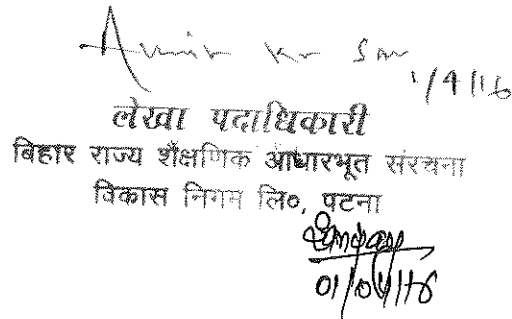 Amit Kr
1/4/16
लेखा पदाधिकारी
बिहार राज्य शैक्षणिक आधारभूत संरचना
विकास निगम लि०, पटना
01/04/16